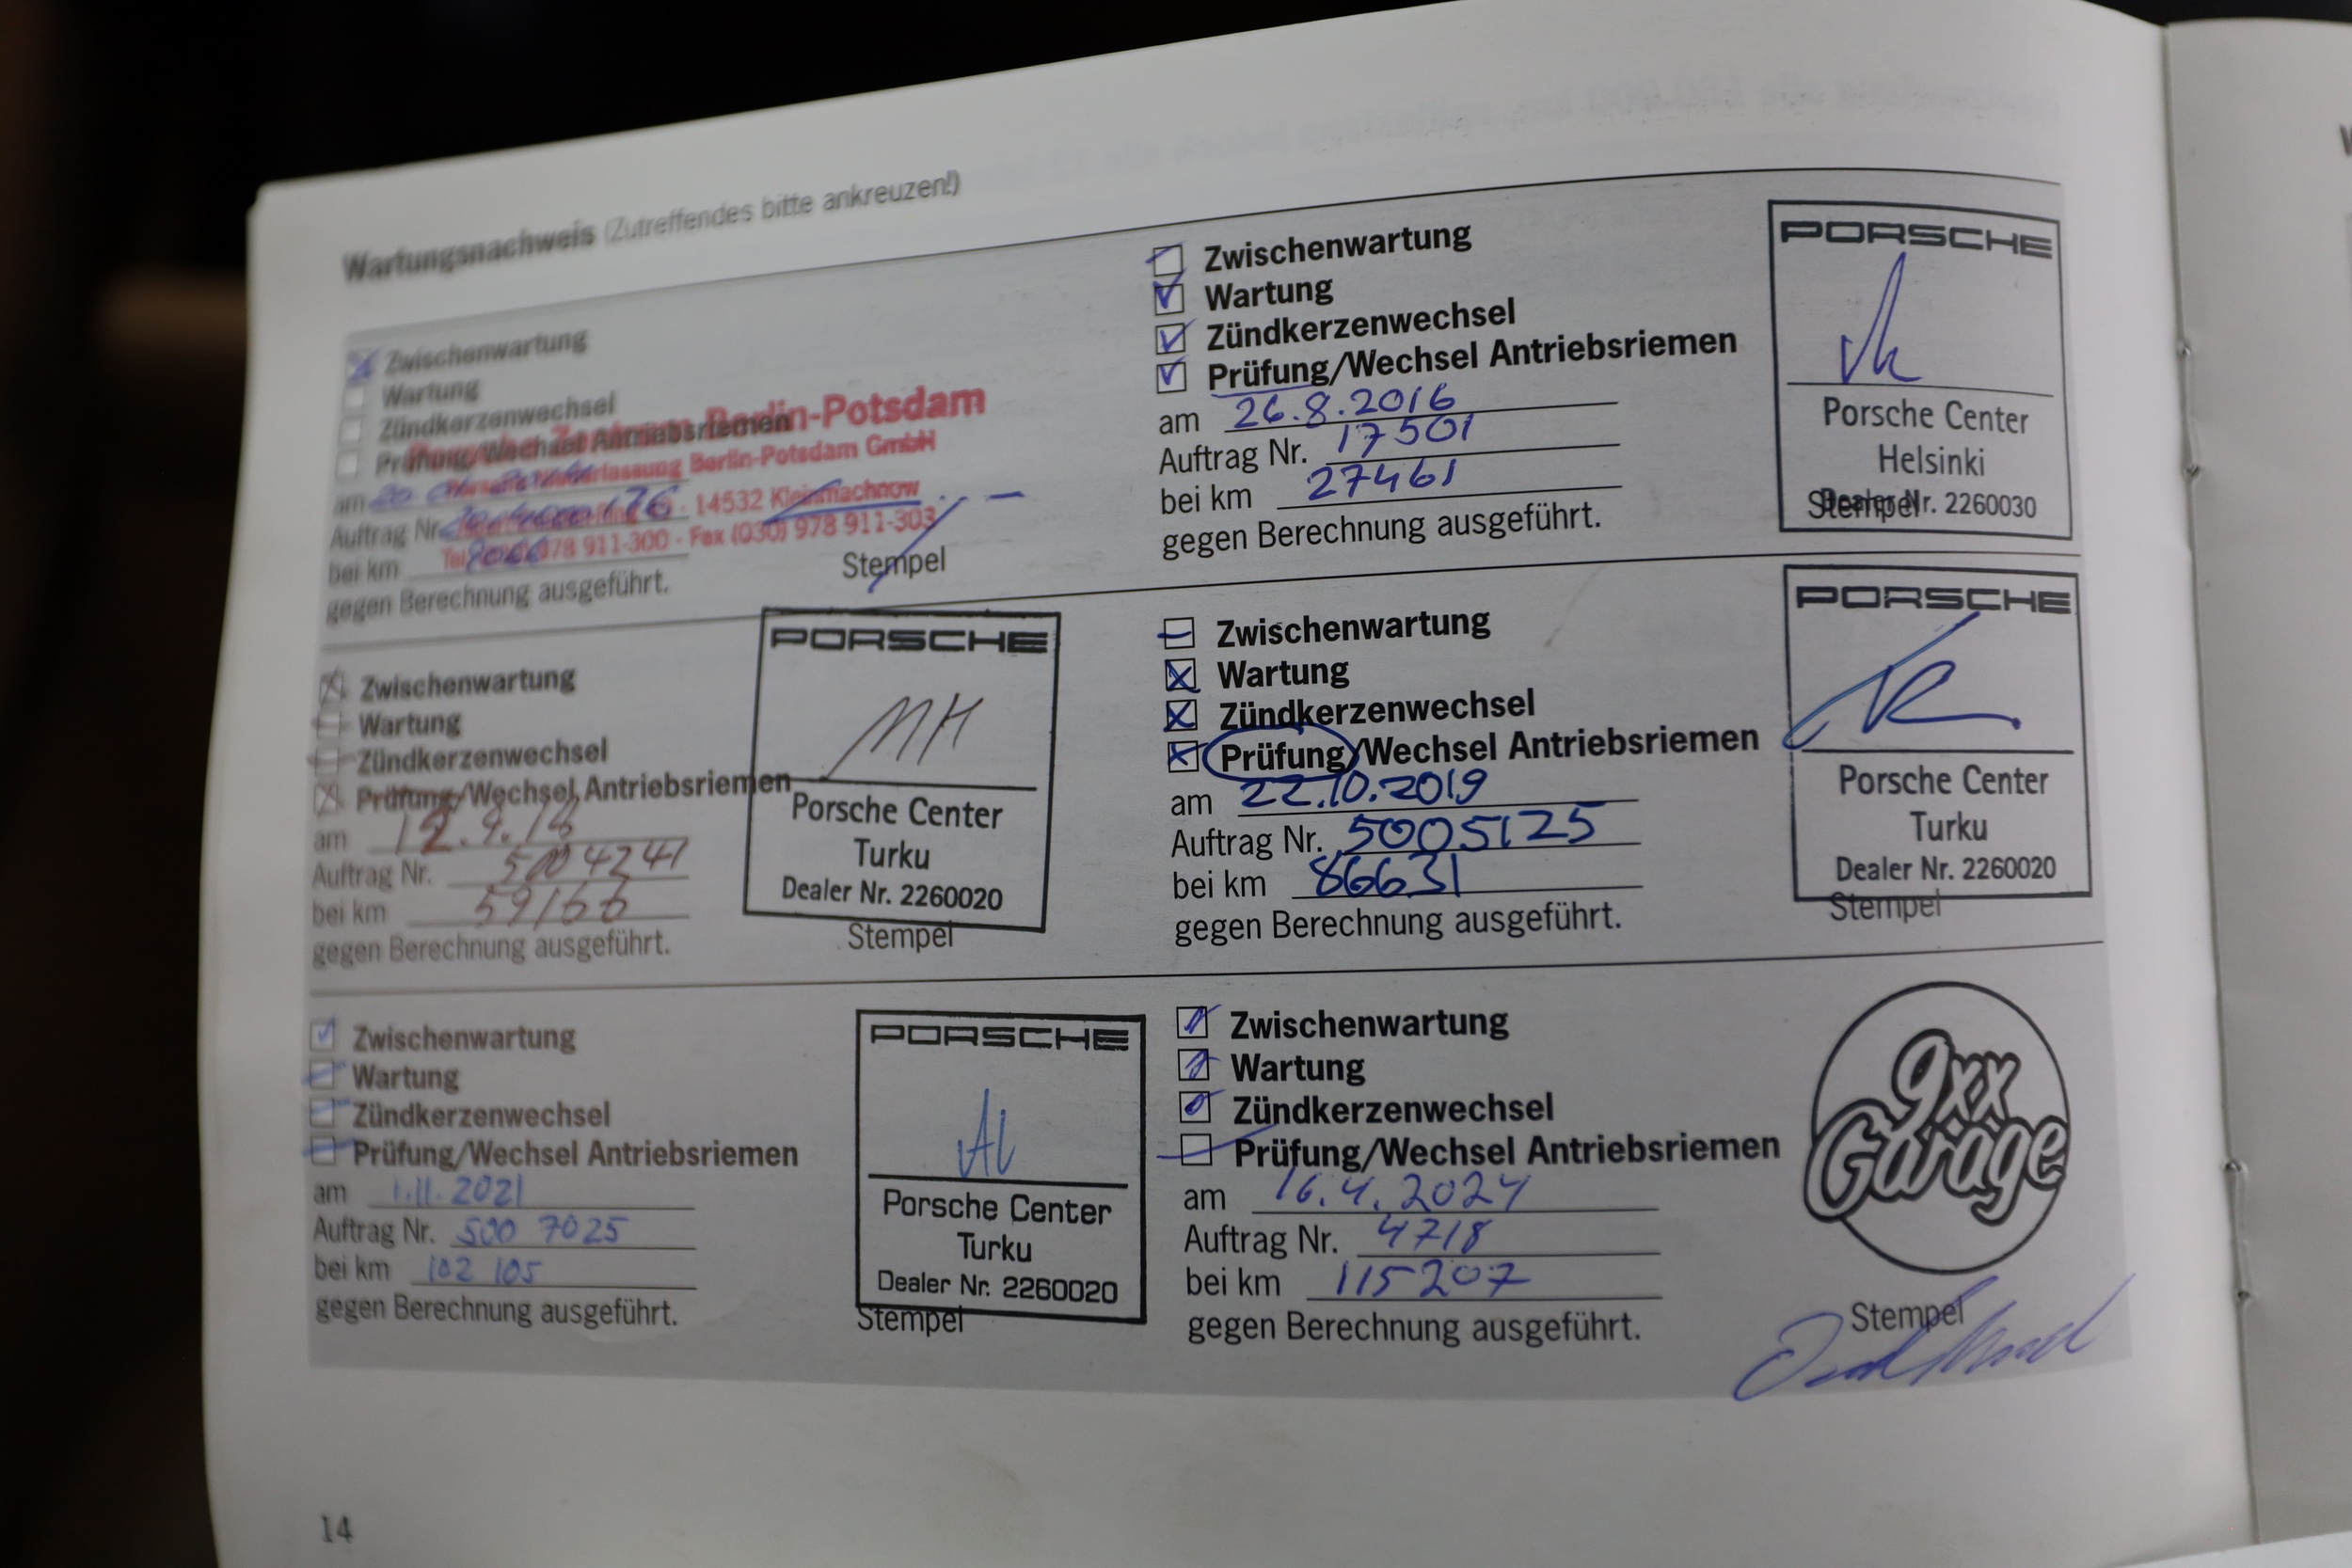 Wartungsnachweis (Zutreffendes bitte ankreuzen!)
Zwischenwartung
Wartung
Zündkerzenwechsel
Prüfung/Wechsel Antriebsriemen
Berlin-Potsdam
Berlin-Potsdam GmbH
14532 Kleinmachnow
978 911-300 · Fax (030) 978 911-303
am
Auftrag Nr.
bei km
gegen Berechnung ausgeführt.
Stempel
Zwischenwartung
Wartung
Zündkerzenwechsel
Prüfung/Wechsel Antriebsriemen
am 26.8.2016
Auftrag Nr. 17501
bei km 27461
gegen Berechnung ausgeführt.
PORSCHE
Porsche Center
Helsinki
Dealer Nr. 2260030
Stempel
Zwischenwartung
Wartung
Zündkerzenwechsel
Prüfung/Wechsel Antriebsriemen
am 12.9.18
Auftrag Nr. 5004241
bei km 59166
gegen Berechnung ausgeführt.
PORSCHE
MH
Porsche Center
Turku
Dealer Nr. 2260020
Stempel
Zwischenwartung
Wartung
Zündkerzenwechsel
Prüfung/Wechsel Antriebsriemen
am 22.10.2019
Auftrag Nr. 5005125
bei km 86631
gegen Berechnung ausgeführt.
PORSCHE
Porsche Center
Turku
Dealer Nr. 2260020
Stempel
Zwischenwartung
Wartung
Zündkerzenwechsel
Prüfung/Wechsel Antriebsriemen
am 1.11.2021
Auftrag Nr. 500 7025
bei km 102 105
gegen Berechnung ausgeführt.
PORSCHE
AL
Porsche Center
Turku
Dealer Nr. 2260020
Stempel
Zwischenwartung
Wartung
Zündkerzenwechsel
Prüfung/Wechsel Antriebsriemen
am 16.4.2024
Auftrag Nr. 4718
bei km 115207
gegen Berechnung ausgeführt.
9xx
Garage
Stempel
14